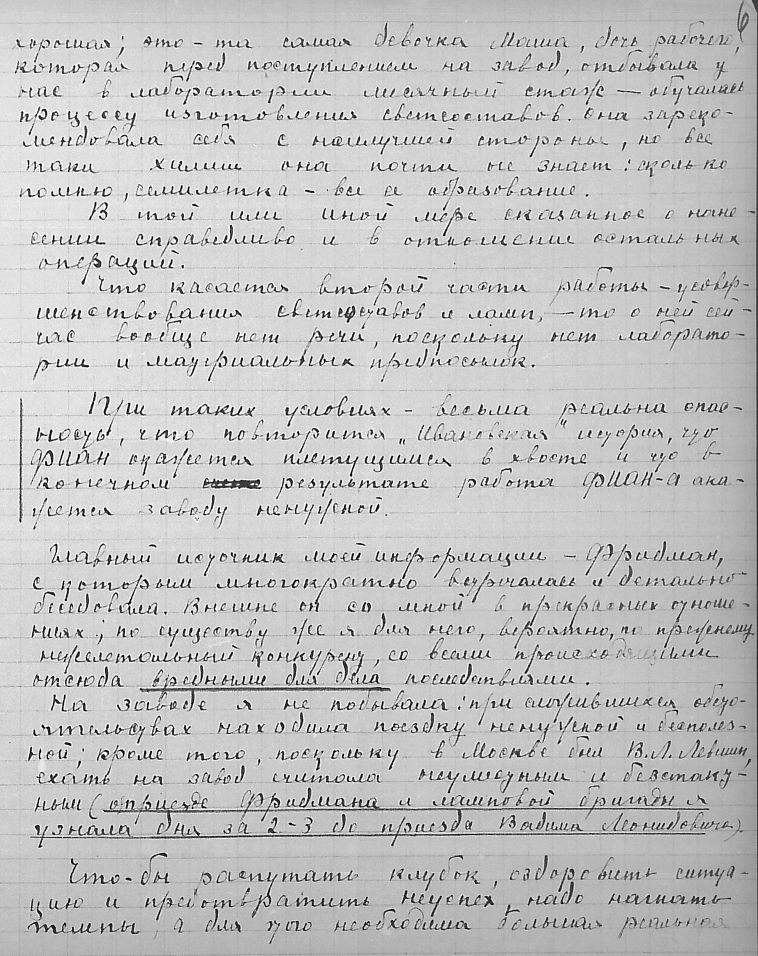 6
хорошая; это - та самая девочка Маша, дочь рабочего,
которая перед поступлением на завод, отбывала у
нас в лаборатории месячный стаж — обучалась
процессу изготовления светсоставов. Она зареко-
мендовала себя с наилучшей стороны, но все
таки химии она почти не знает: сколько
помню, семилетка - все ее образование.
В той или иной мере сказанное о нане-
сении справедливо и в отношение остальных
операций.
Что касается второй части работы - усовер-
шенствования светсоставов и ламп, — то о ней сей-
час вообще нет речи, поскольку нет лаборато-
рии и материальных предпосылок.
При таких условиях - весьма реальна опас-
ность, что повторится „Ивановская" история, что
ФИАН окажется плетущимся в хвосте и что в
конечном результате работа ФИАН-а ока-
жется заводу ненужной.
Главный источник моей информации - Фридман,
с которым многократно встречалась и детально
беседовала. Внешне он со мной в прекрасных отноше-
ниях; по существу же я для него, вероятно, по прежнему
нежелательный конкурент, со всеми происходящими
отсюда вредными для дела последствиями.
На заводе я не побывала: при сложившихся обсто-
ятельствах находила поездку ненужной и бесполез-
ной; кроме того, поскольку в Москве был В.Л. Левшин,
ехать на завод считала неуместным и безтакт-
ным (о приезде Фридмана и ламповой бригады я
узнала дня за 2-3 до приезда Вадима Леонидовича).
Что-бы распутать клубок, оздоровить ситуа-
цию и предотвратить неуспех, надо нагнать
темпы, а для того необходима большая реальная